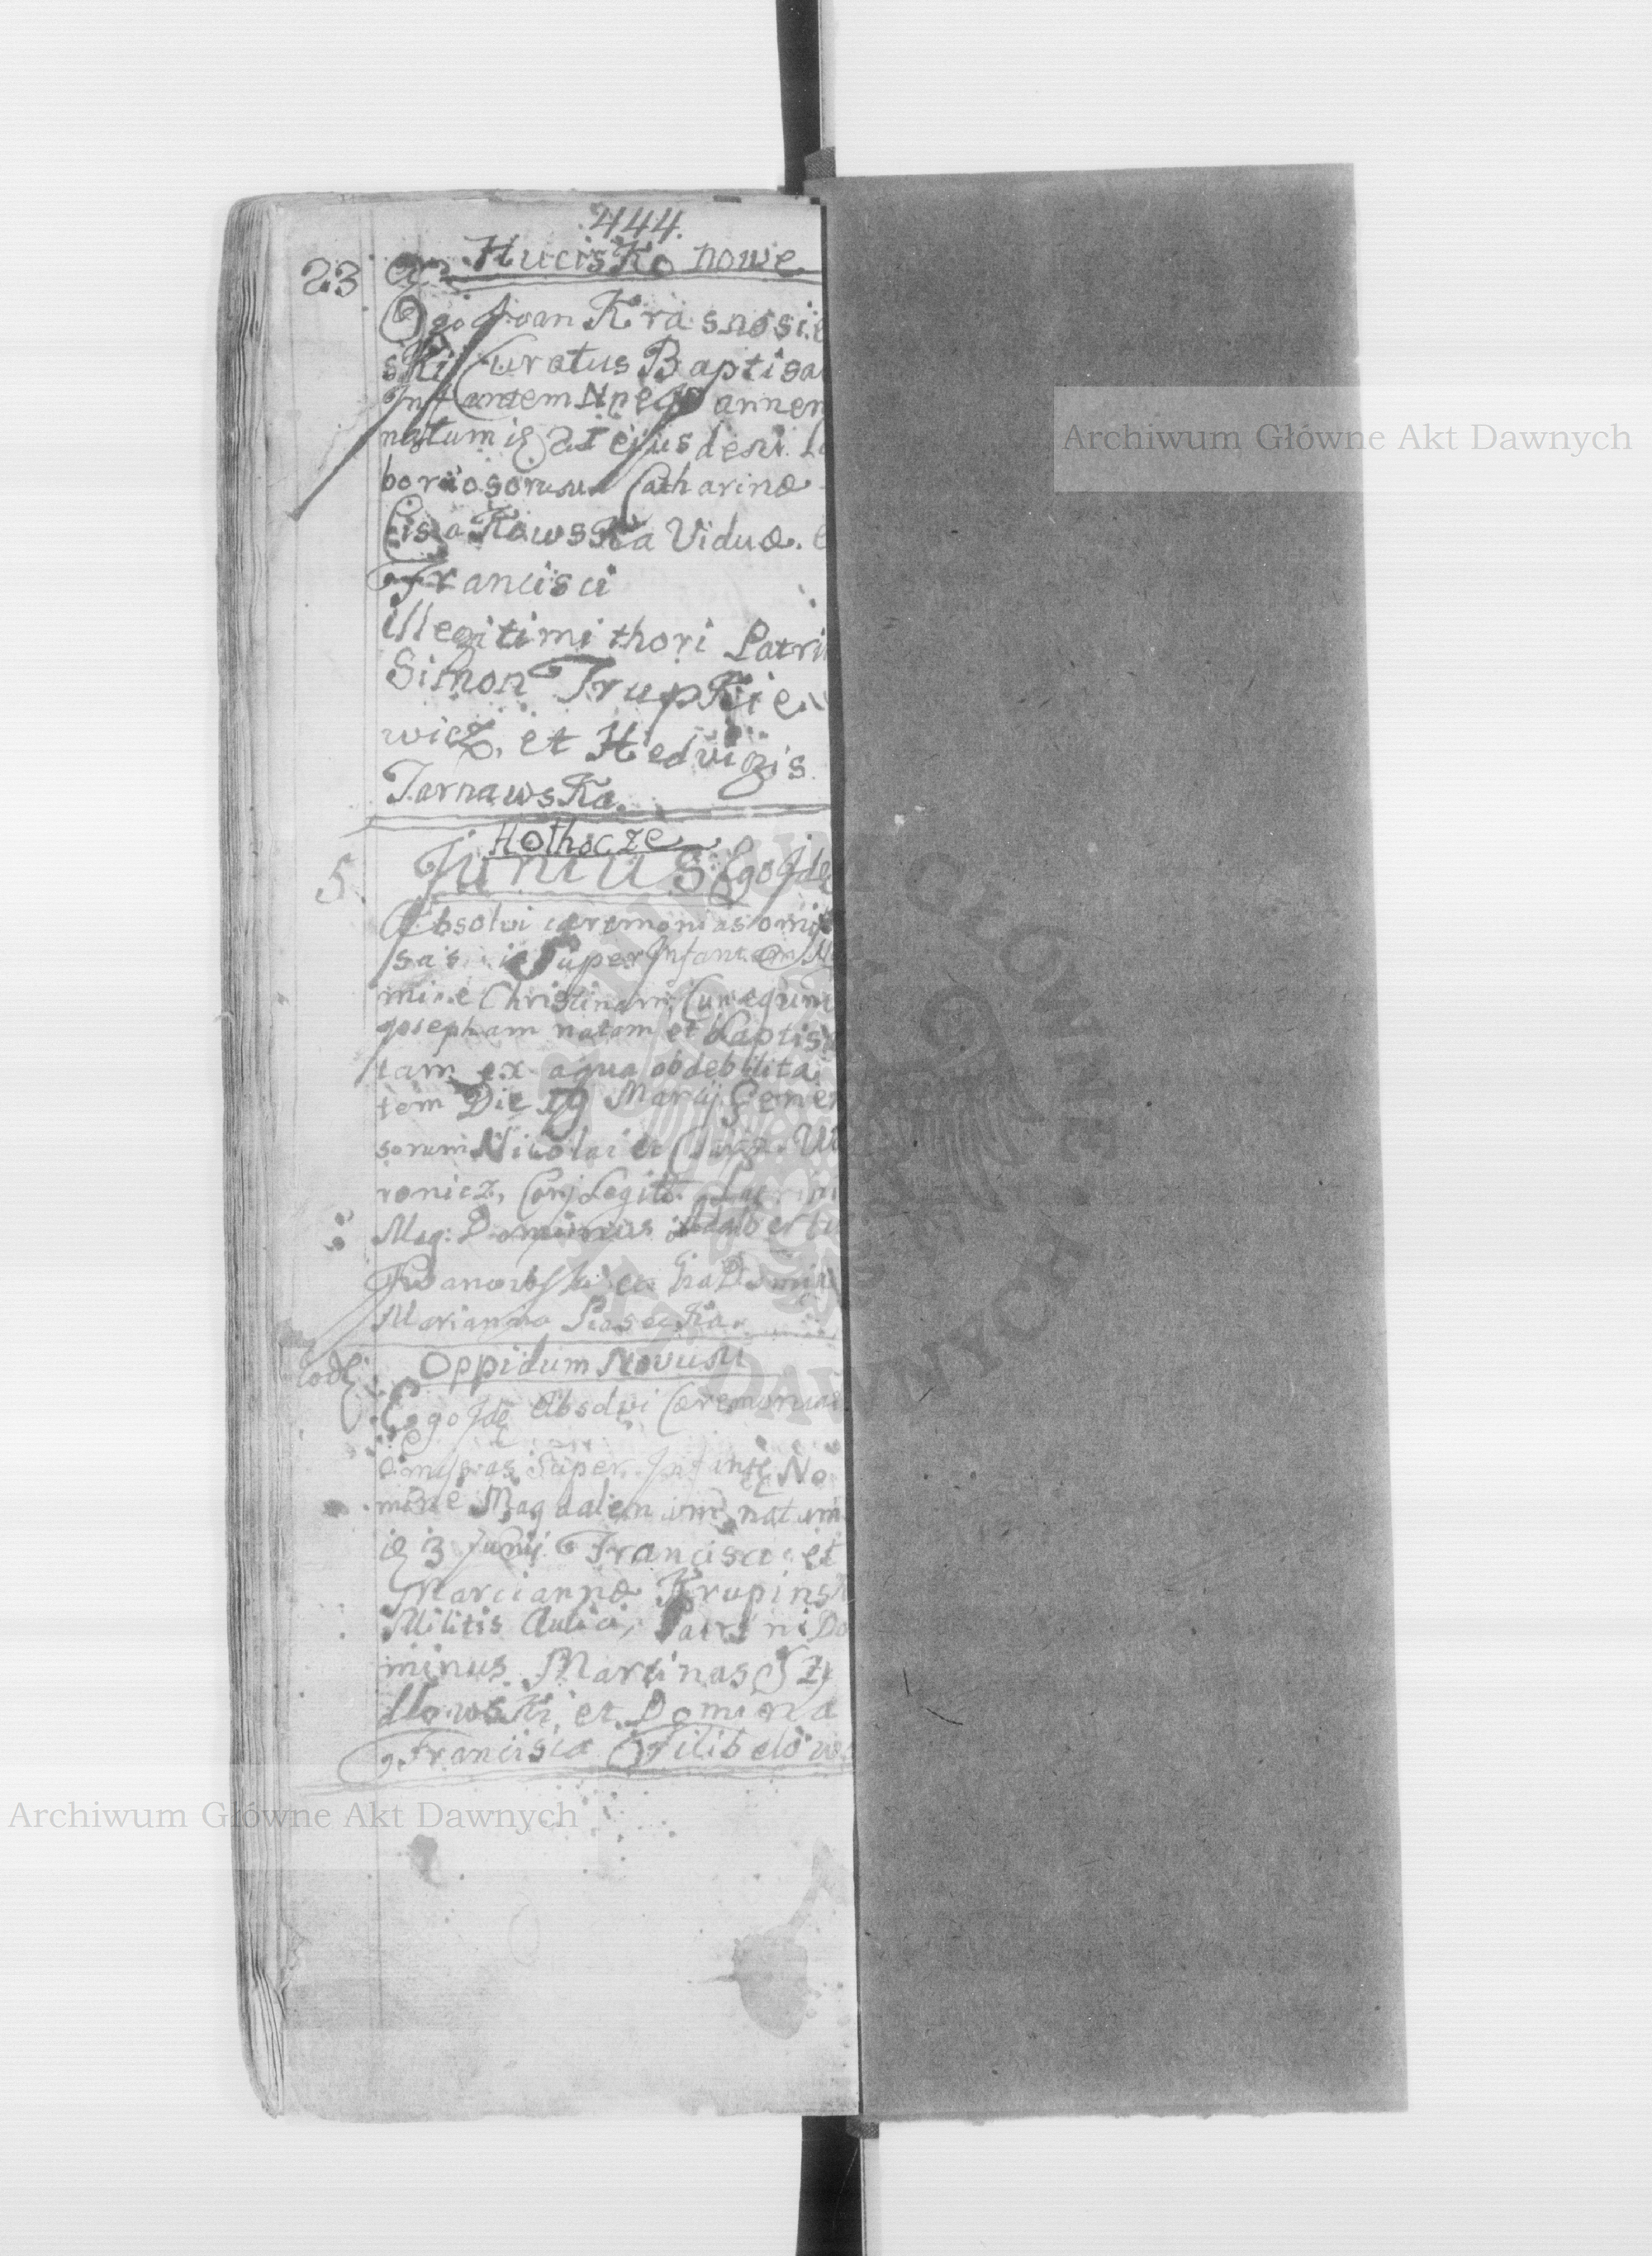 444.
Hucisko nowe
23
Ego Joan Krasnosie
ski Curatus Baptisa
Infantem Npe Joannem
natum ejusdem. La
boriosorum Catharinæ
CisaKowsKa Viduæ. e
Francisci
illegitimi thori Patri
Simon TrupKie
wicz, et Hedvigis
TarnawsKa.
Hothocze
5. Junius Ego Ide
Absolvi cæremonias omis
sas Super Infantem No
mine Christinam Cunegund
Josepham natam et baptisa
tam ex aqua ob debilita
tem Die 19 Martij Gener
sorum Nicolai et
ronicz, Conj Legit: Patrini
Mag: Dominus Adalbertu
et
Marianna PiasecKa.
Oppidum Novum
Eodē
Ego Idē Absolvi Cæremonias
omissas Super Infantē No
mine Magdalenam natam
3 Junij Francisci et
Mariannæ Krupinsk
Militis Aulici, Patrini Do
minus Martinus Szy
dlowsKi et Domina
Francisca Filibelow
Archiwum Główne Akt Dawnych
Archiwum Główne Akt Dawnych